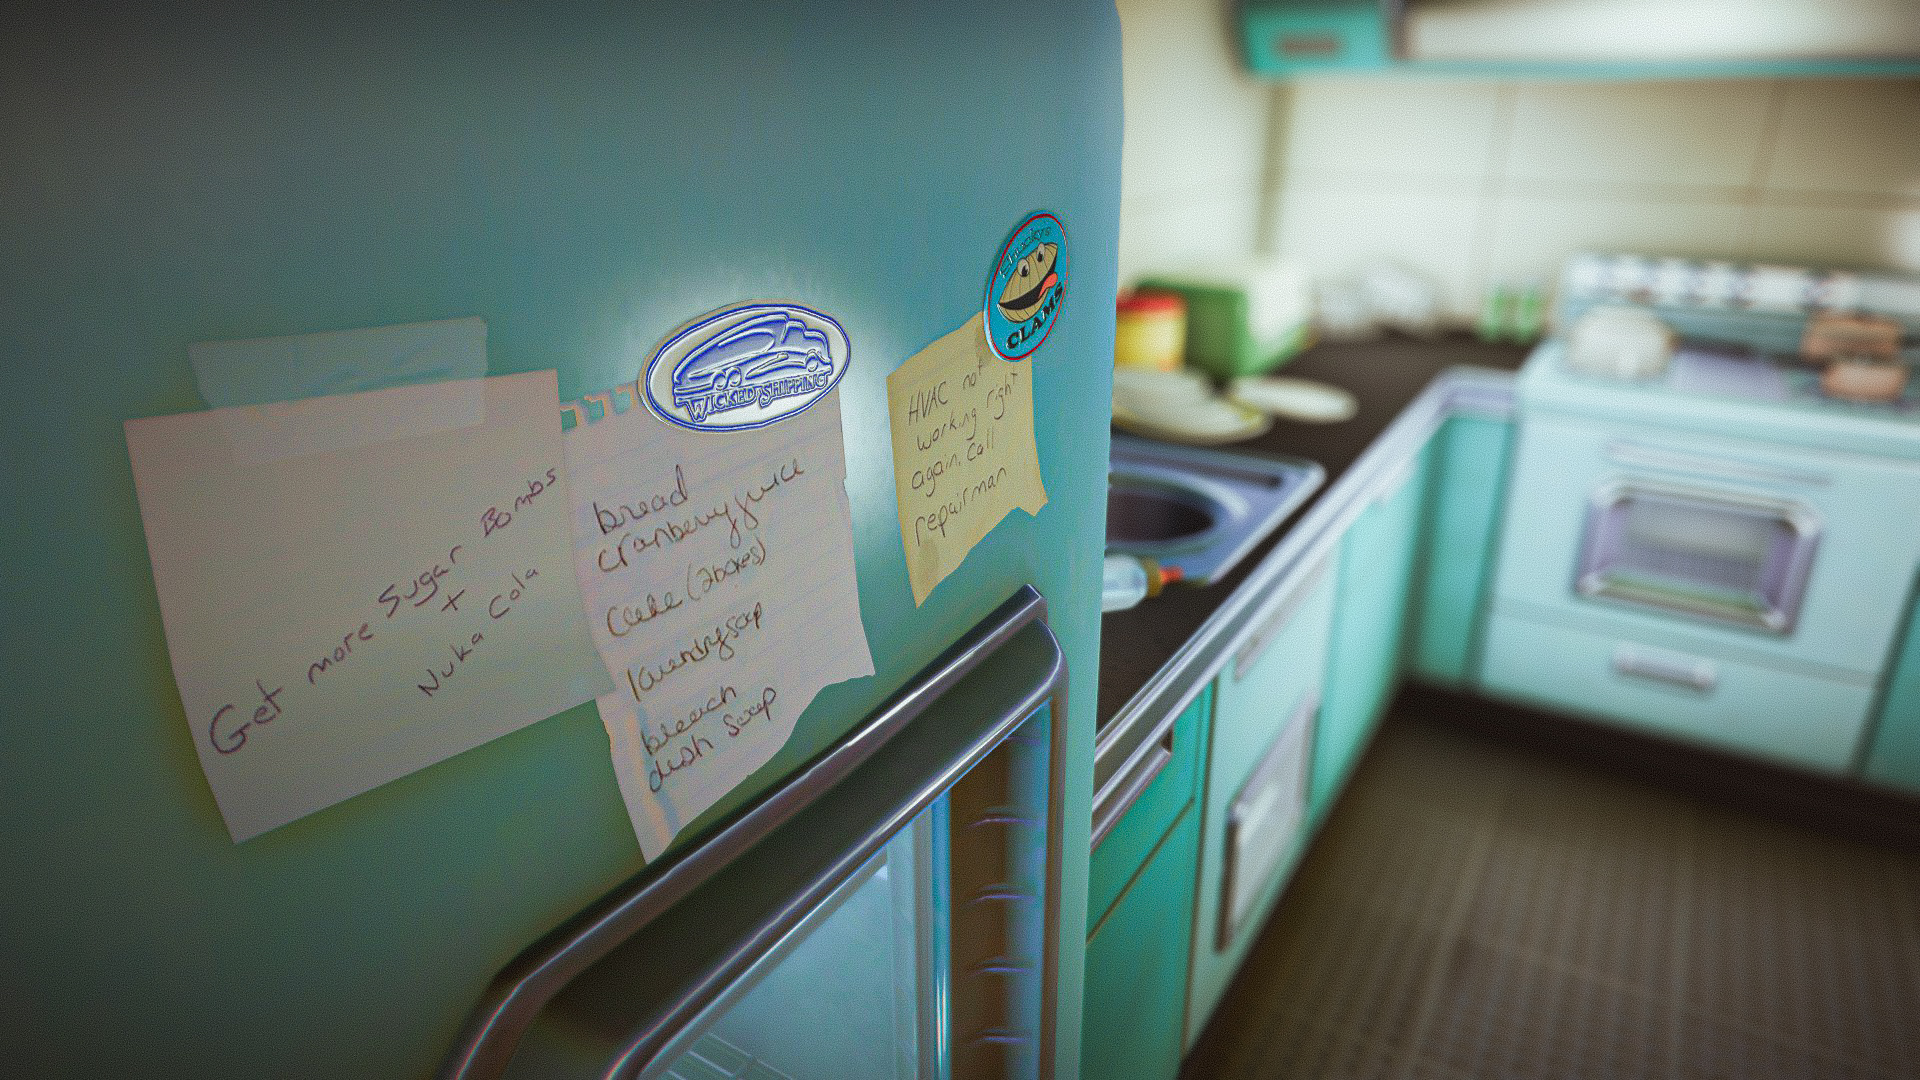 Get more Sugar Bombs
+
Nuka Cola
WICKED SHIPPING
bread
cranberry juice
cake (2boxes)
laundry soap
bleach
dish soap
CLAMS
HVAC not
working right
again, call
repairman